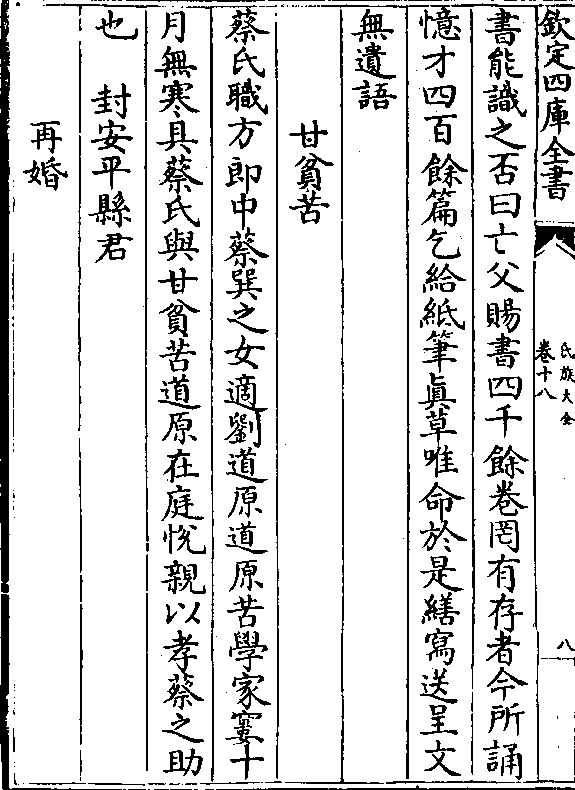 欽定四庫全書
氏族大全
卷十八
八
書能識之否曰亡父賜書四千餘卷罔有存者今所誦
憶才四百餘篇乞給紙筆眞草唯命於是繕寫送呈文
無遺語
甘貧苦
蔡氏職方郎中蔡巽之女適劉道原道原苦學家窶十
月無寒具蔡氏與甘貧苦道原在庭悅親以孝蔡之助
也 封安平縣君
再婚